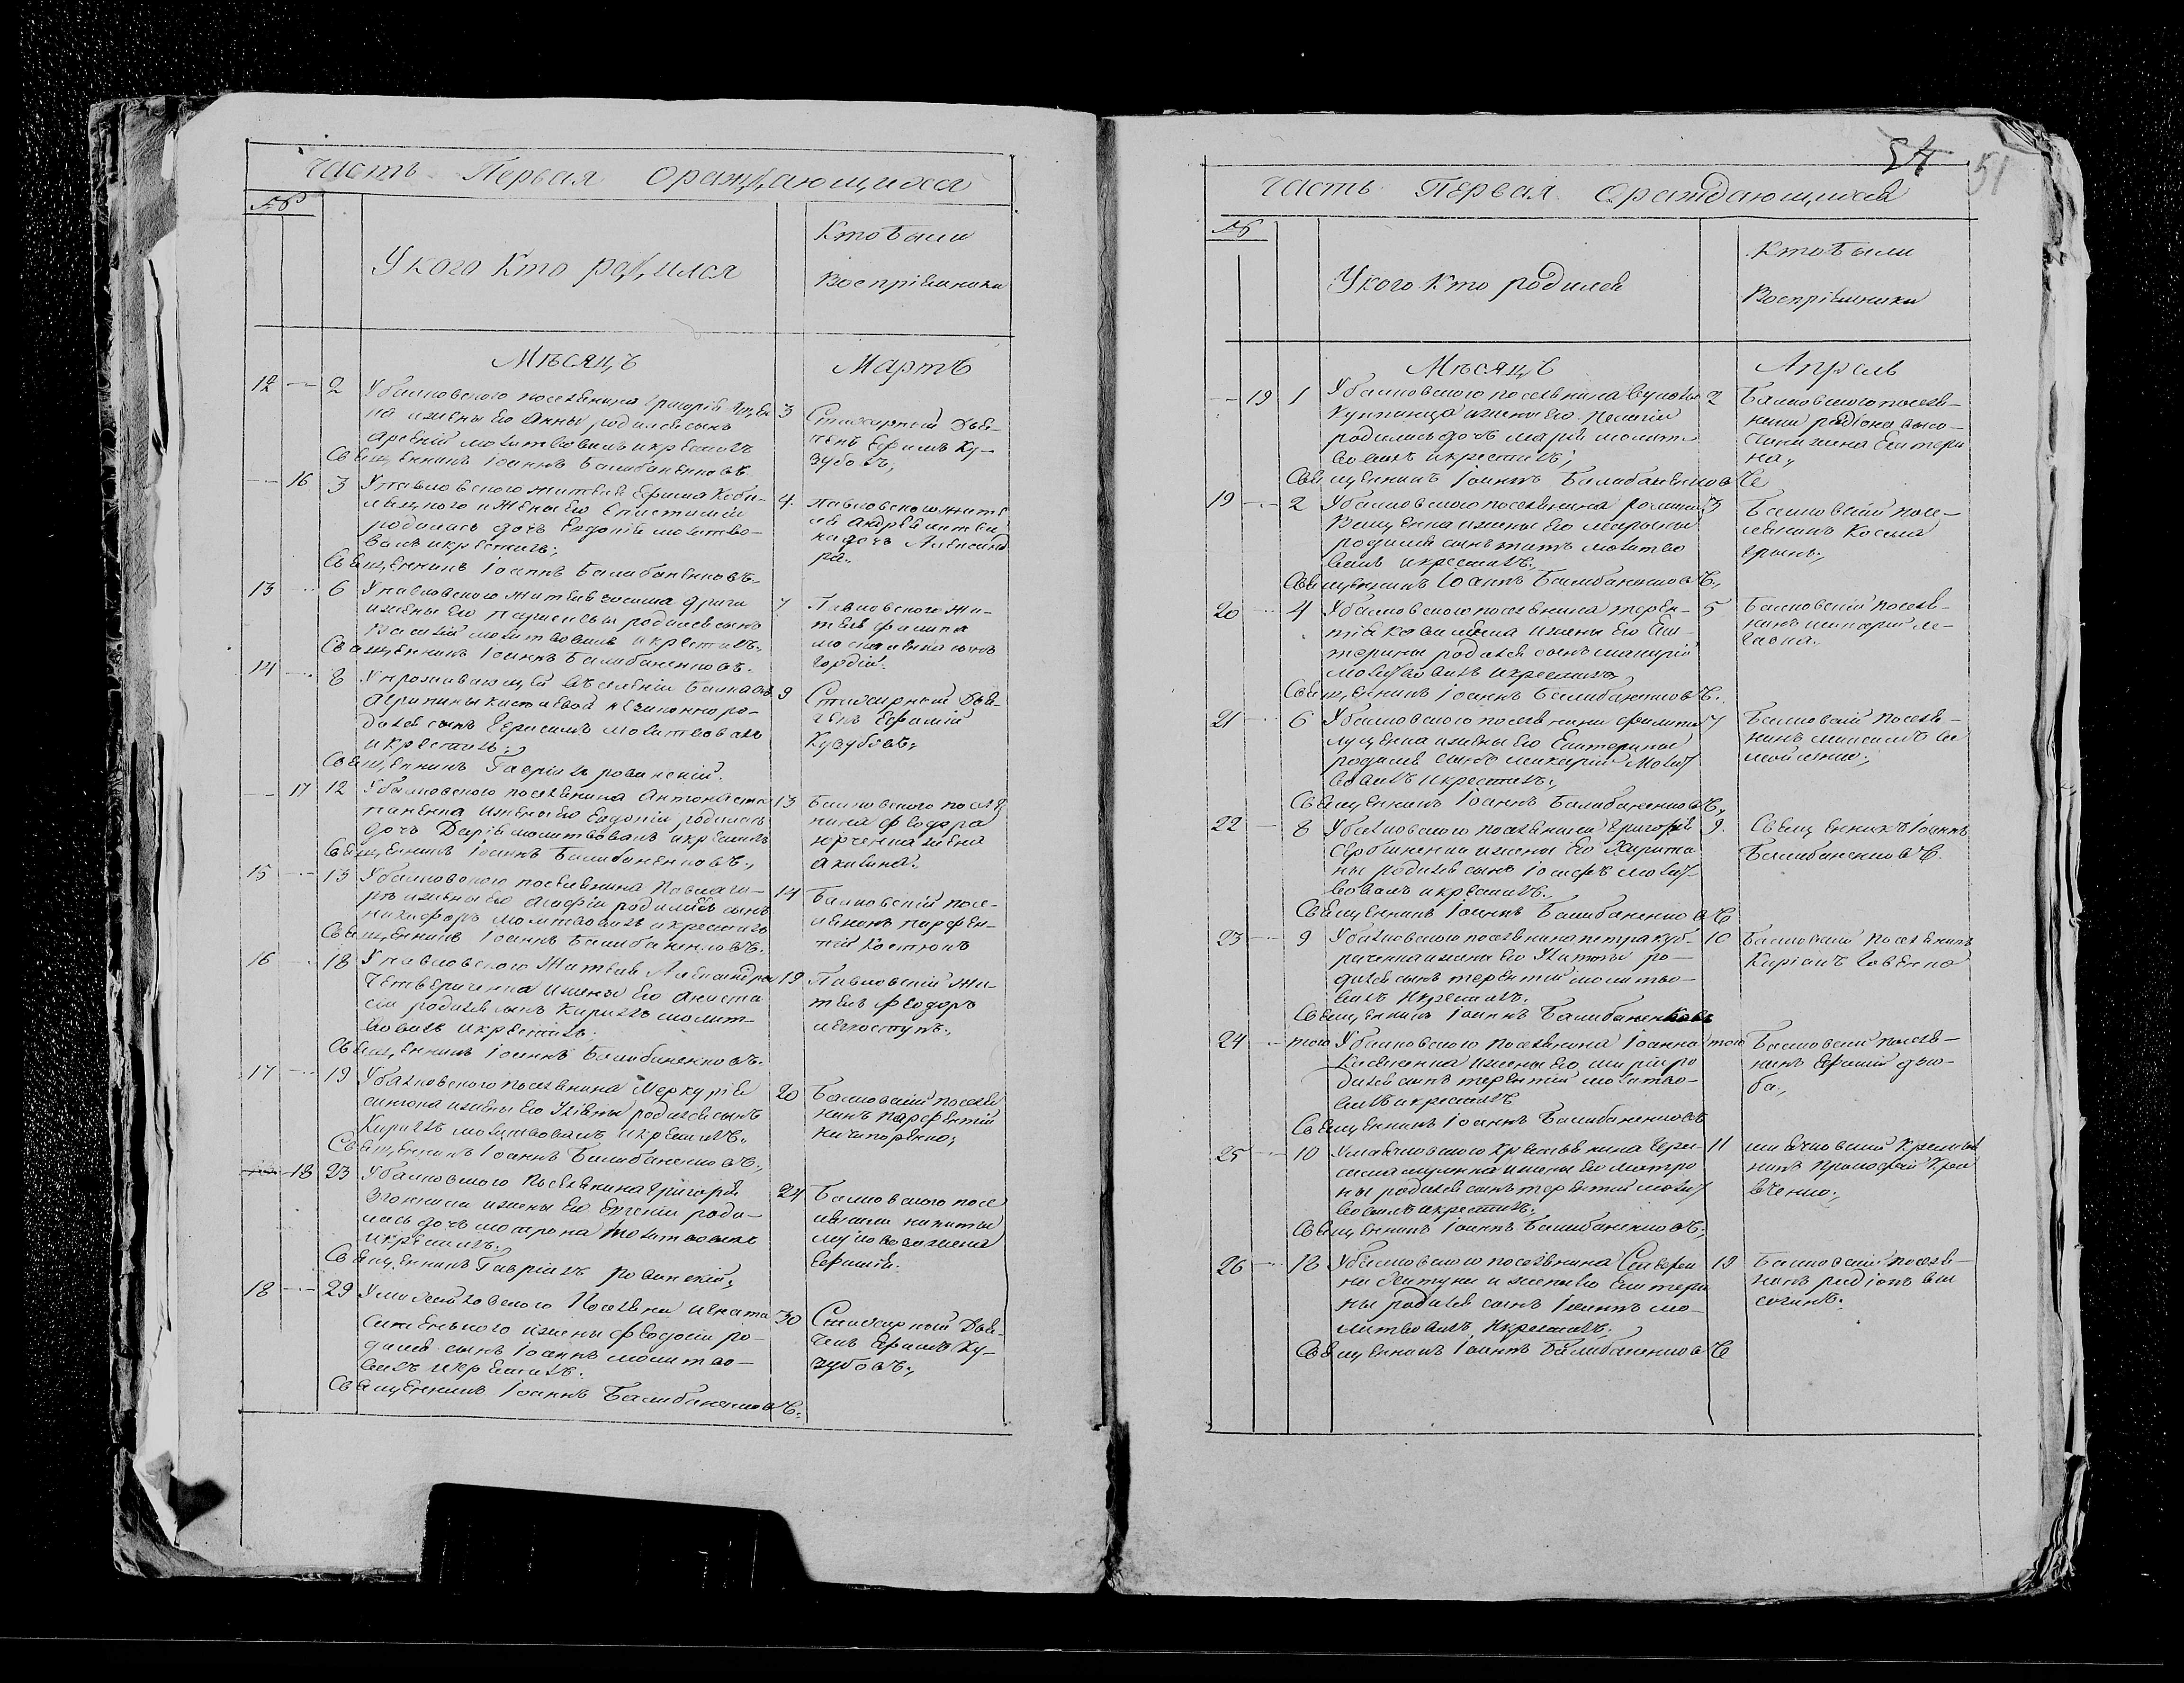 часть Первая ораждающихся
№
Укого Кто родился
Кто были
Воспріемники
Мѣсяцъ Мартъ
12 2 Убалковского поселенина Григорія
на ижены его Анны родился сынъ
Арсеній молитвовалъ икрестилъ
Священникъ Іоаннъ Балабаненковъ
3 Стихарный Дья-
чекъ Ефимъ Ку-
зубовъ,
16 3 Упавловского жителя Ефима Коби-
ижены его Епистиміи
родилась дочь Евдокія молитво-
валъ икрестилъ;
Священникъ Іоаннъ Балабаненковъ.
4 Павловского жите
ля Андрея
дочь Александ
ра.
13 6 Упавловского жителя
ижены его Параскевы родился сынъ
Василій молитвовалъ икрестилъ.
Священникъ Іоаннъ Балабаненковъ.
7 Павловского Жи-
теля филипа
сынъ
Гордій.
14 8 Упроживающей вселеніи Балковкѣ
Агрипины незаконно ро-
дился сынъ Герасимъ молитвовалъ
икрестилъ;
Священникъ Гавріилъ рованскій.
9 Стихарный Дья-
чекъ Ефимій
Кузубовъ,
17 12 Убалковского поселенина Антона сте
паненка ижены его Евдокіи родилась
дочь Дарія молитвовалъ икрестилъ
Священникъ Іоаннъ Балабаненковъ,
13 Балковского поселе
нина феодора
юрченка жена
акилина.
15 13 Убалковского поселенина Павла
ижены его Агафіи родился сынъ
никифоръ молитвовалъ икрестилъ
Священникъ Іоаннъ Балабаненковъ.
14 Балковскій посе-
ленинъ парфен-
тій Костюкъ
16 18 Упавловского Жителя Александра
Четвериченка ижены его Анаста
сіи родился сынъ Кирилъ молит-
вовалъ икрестилъ.
Священникъ Іоаннъ Балабаненковъ.
19 Павловскій Жи-
тель феодоръ
легкоступъ.
17 19 Убалковского поселенина Меркурія
ижены его Уліяны родился сынъ
Кирилъ молитвовалъ икрестилъ.
Священникъ Іоаннъ Балабаненковъ,
20 Балковскій поселе
нинъ парфентій
ничипоренко,
18 23 Убалковского Поселенина Григорія
ижены его Евгеніи роди-
лась дочь матрона молитвовалъ
икрестилъ.
Священникъ Гавріилъ рованскій,
24 Балковского посе
ленина никиты
жена
Ефимія.
18 29 Поселенина игната
ижены феодосіи ро-
дился сынъ Іоаннъ молитво-
валъ икрестилъ.
Священникъ Іоаннъ Балабаненковъ.
30 Стихарный Дья-
чекъ Ефимъ Ку-
зубовъ,
51
часть Первая ораждающихся
№
Укого Кто родился
Кто были
Воспріемники
Мѣсяцъ Апрель
19 1 Убалковского поселенина
ижены его Пелагіи
родилась дочь марія молитво
вовалъ икрестилъ;
Священникъ Іоаннъ Балабаненковъ
2 Балковского поселе-
нина радіона высо-
чина жена Екатери
на,
19 2 Убалковского поселенина романа
ижены его марины
родился сынъ титъ молитво
валъ икрестилъ.
Священникъ Іоаннъ Балабаненковъ,
3 Балковскій посе-
ленинъ Косьма
20 4 Убалковского поселенина терен-
тія ижены его Ека-
терины родился сынъ макарій
молитвовалъ икрестилъ
Священникъ Іоаннъ Балабаненковъ.
5 Балковскій поселе-
нинъ
21 6 Убалковского поселенина филипа
луценка ижены его Екатерины
родился сынъ макарій молит
вовалъ икрестилъ,
Священникъ Іоаннъ Балабаненковъ,
7 Балковскій поселе-
нинъ максимъ са
мойленко,
22 8 Убалковского поселенина Григорія
Сербиненка ижены его Харити
ны родился сынъ Іосифъ молит
вовалъ икрестилъ.
Священникъ Іоаннъ Балабаненковъ
9 Священникъ Іоаннъ
Балабаненковъ.
23 9 Убалковского поселенина петра
ижены его Улиты ро-
дился сынъ терентій молитво-
валъ икрестилъ.
Священникъ Іоаннъ Балабаненковъ
10 Балковскій поселенинъ
Киріакъ
24 того Убалковского поселенина Іоанна
ижены его маріи ро
дился сынъ терентій молитво-
валъ икрестилъ
Священникъ Іоаннъ Балабаненковъ
того Балковскій поселе-
нинъ Ефимій дзю-
ба,
25 10 крестьянина Гера-
сима ижены его матро
ны родился сынъ терентій молит
вовалъ икрестилъ.
Священникъ Іоаннъ Балабаненковъ,
11 крестья
нинъ Прокофій Кра
вченко,
26 18 Убалковского поселенина
ижены его Екатери
ны родился сынъ Іоаннъ мо-
литвовалъ икрестилъ.
Священникъ Іоаннъ Балабаненковъ
19 Балковскій поселе-
нинъ радіонъ вы
сочинъ.